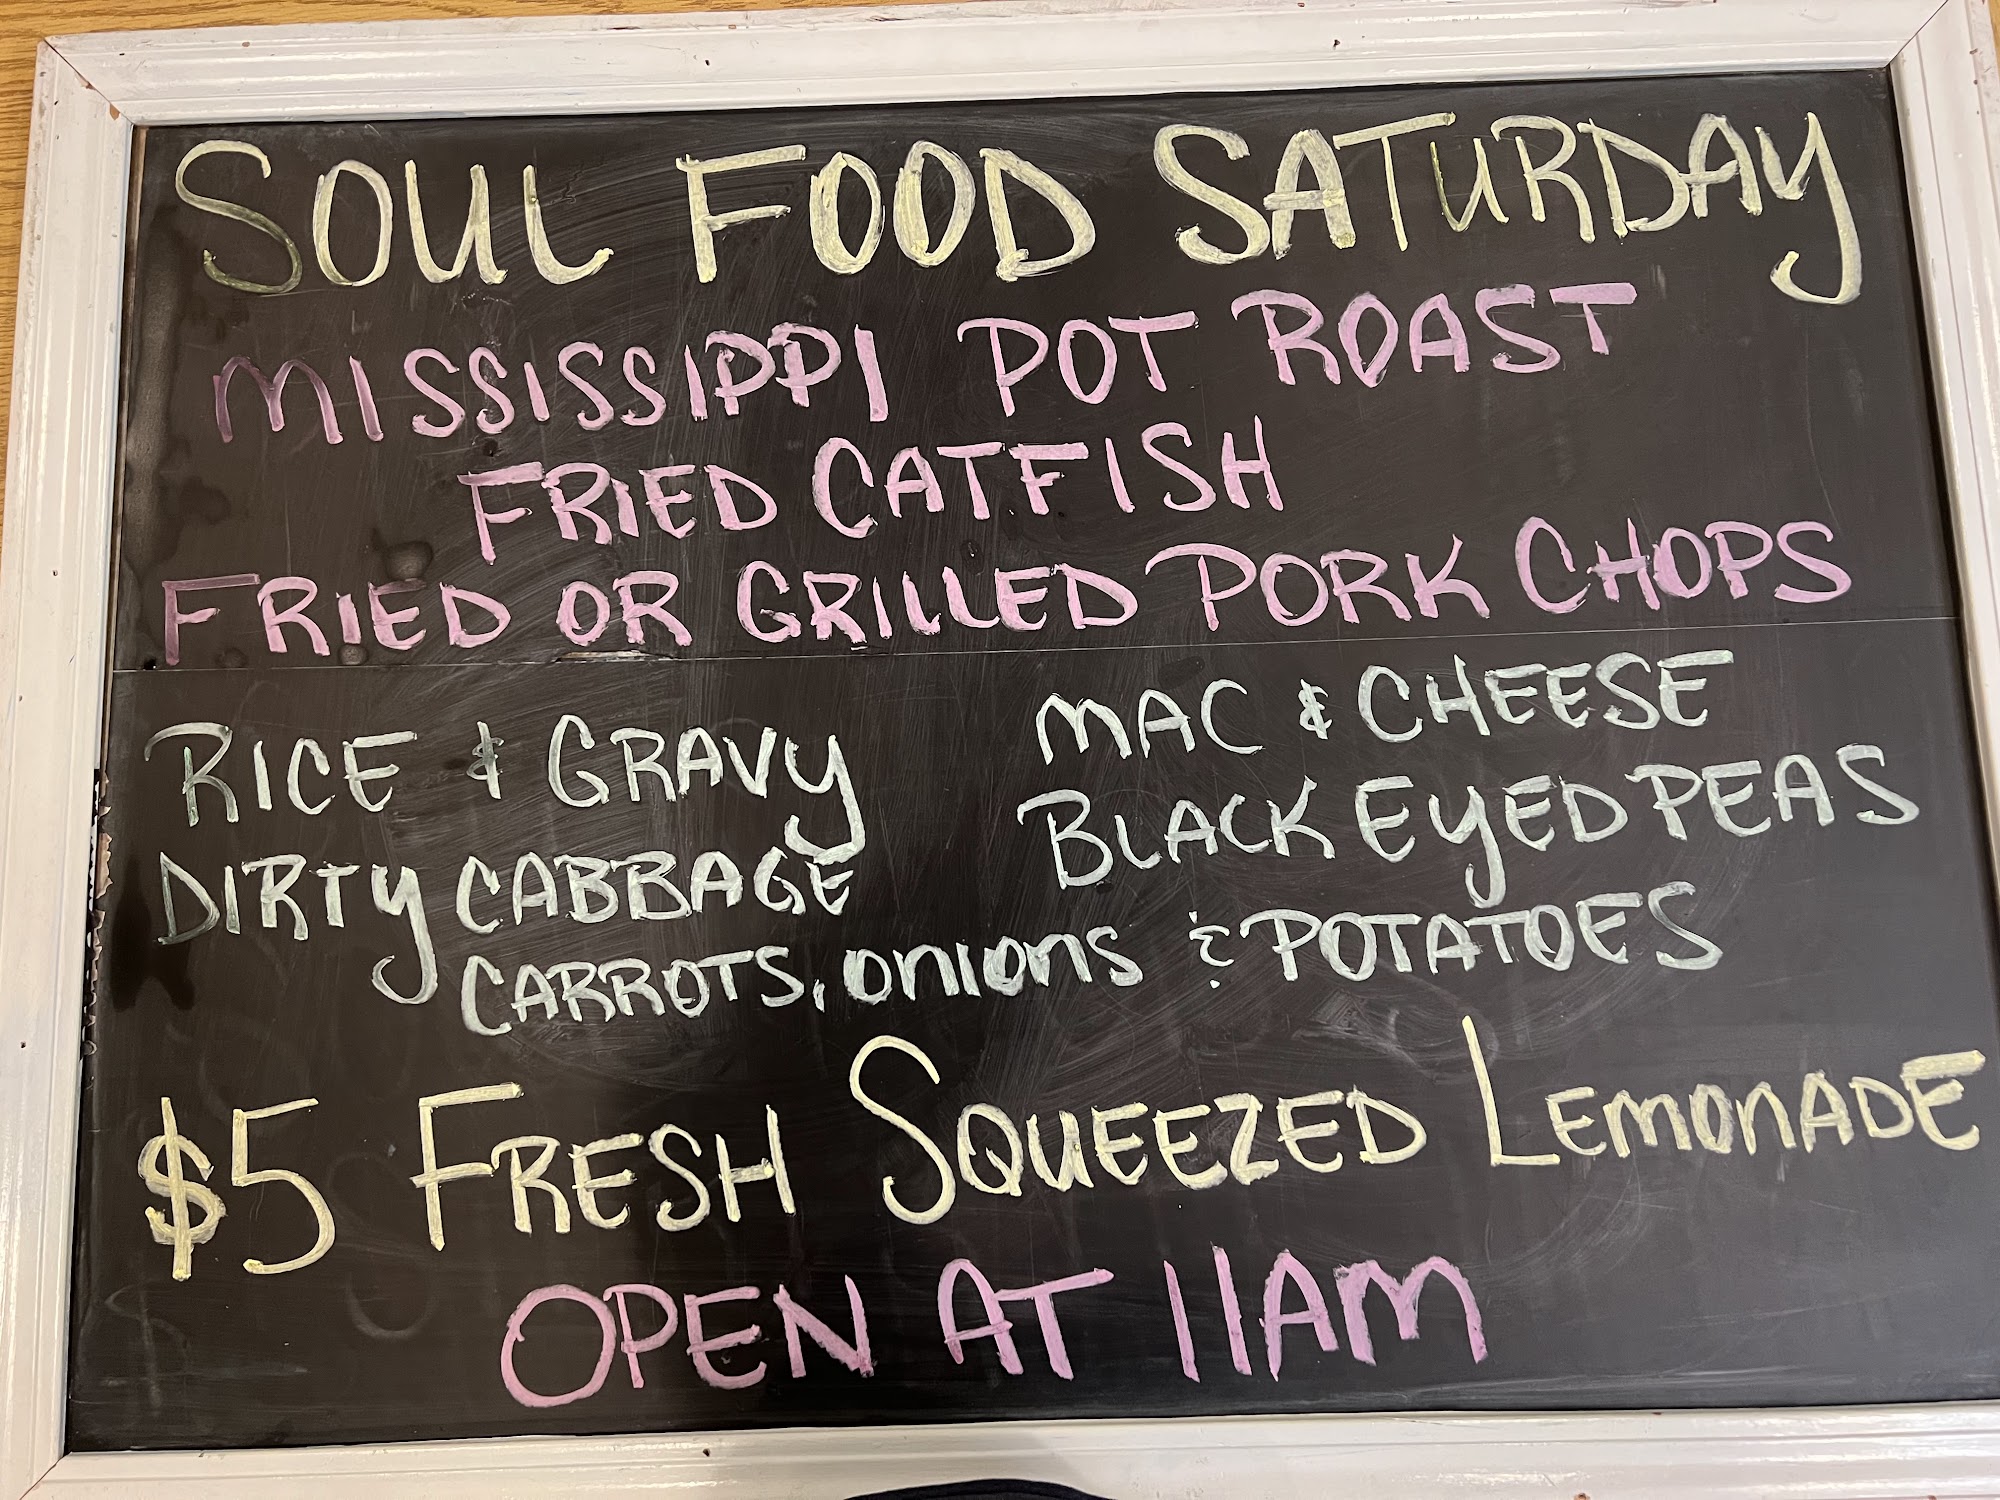 SOUL FOOD SATURDAY
MISSISSIPPI POT ROAST
FRIED CATFISH
FRIED OR GRILLED PORK CHOPS
RICE & GRAVY
MAC & CHEESE
DIRTY CABBAGE
BLACK EYED PEAS
CARROTS, ONIONS & POTATOES
$5 FRESH SQUEEZED LEMONADE
OPEN AT 11AM